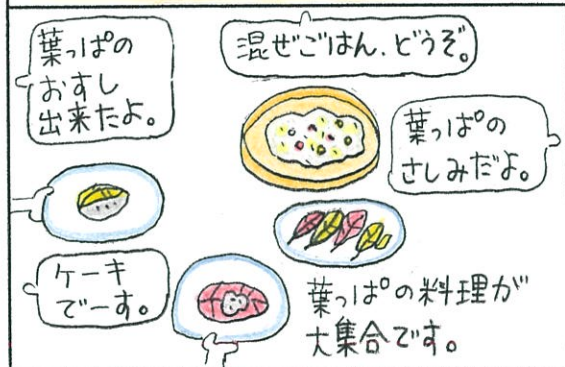 葉っぱの
おすし
出来たよ。
混ぜごはん、どうぞ。
葉っぱの
さしみだよ。
ケーキ
でーす。
葉っぱの料理が
大集合です。